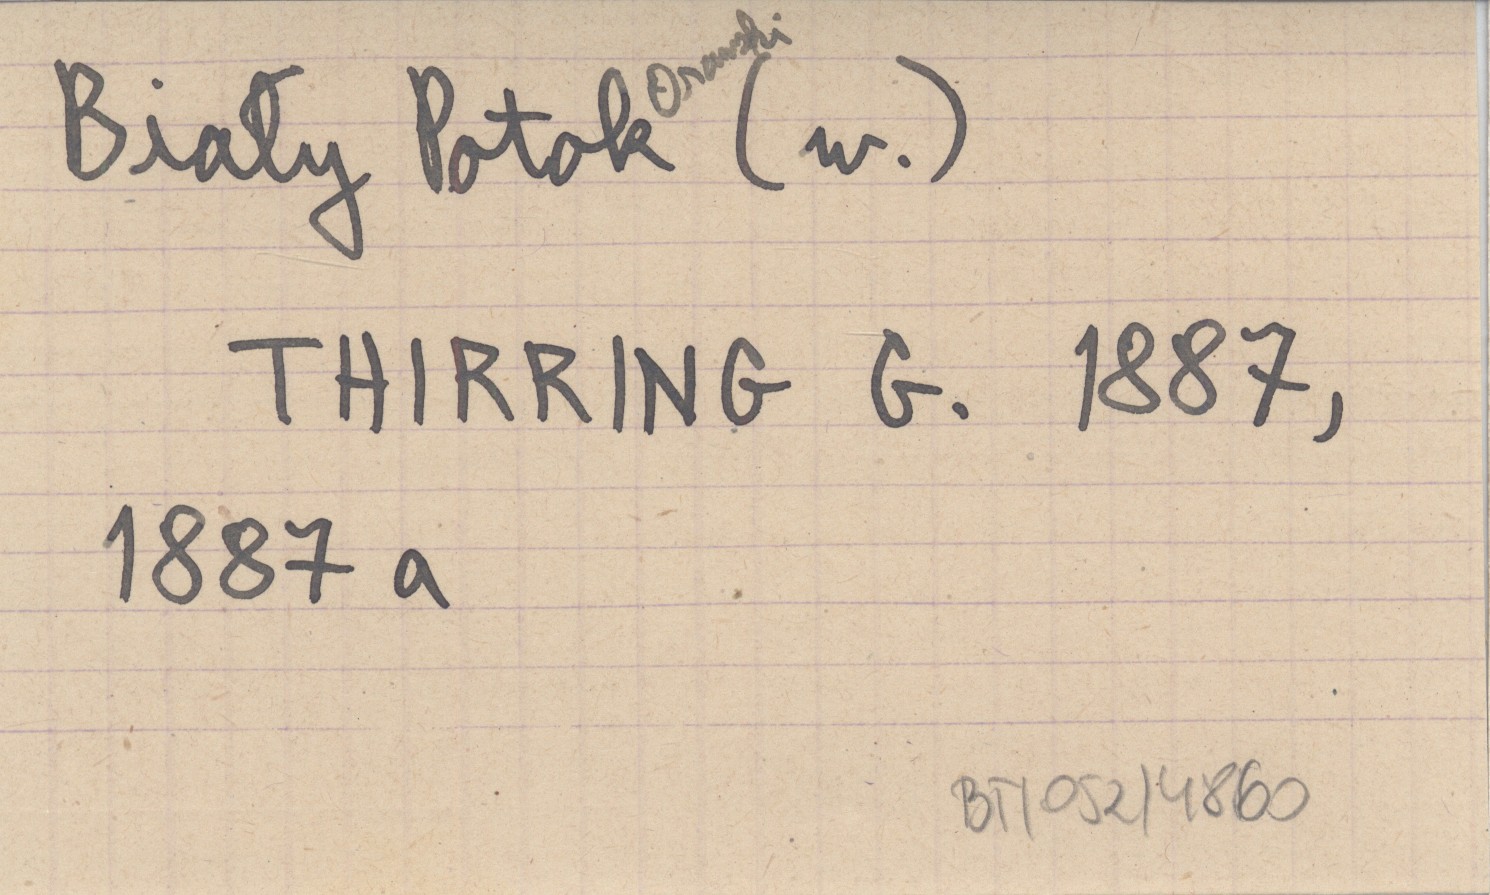 Biały Potok Orawski (w.)
THIRRING G. 1887,
1887 a
BT/052/4860